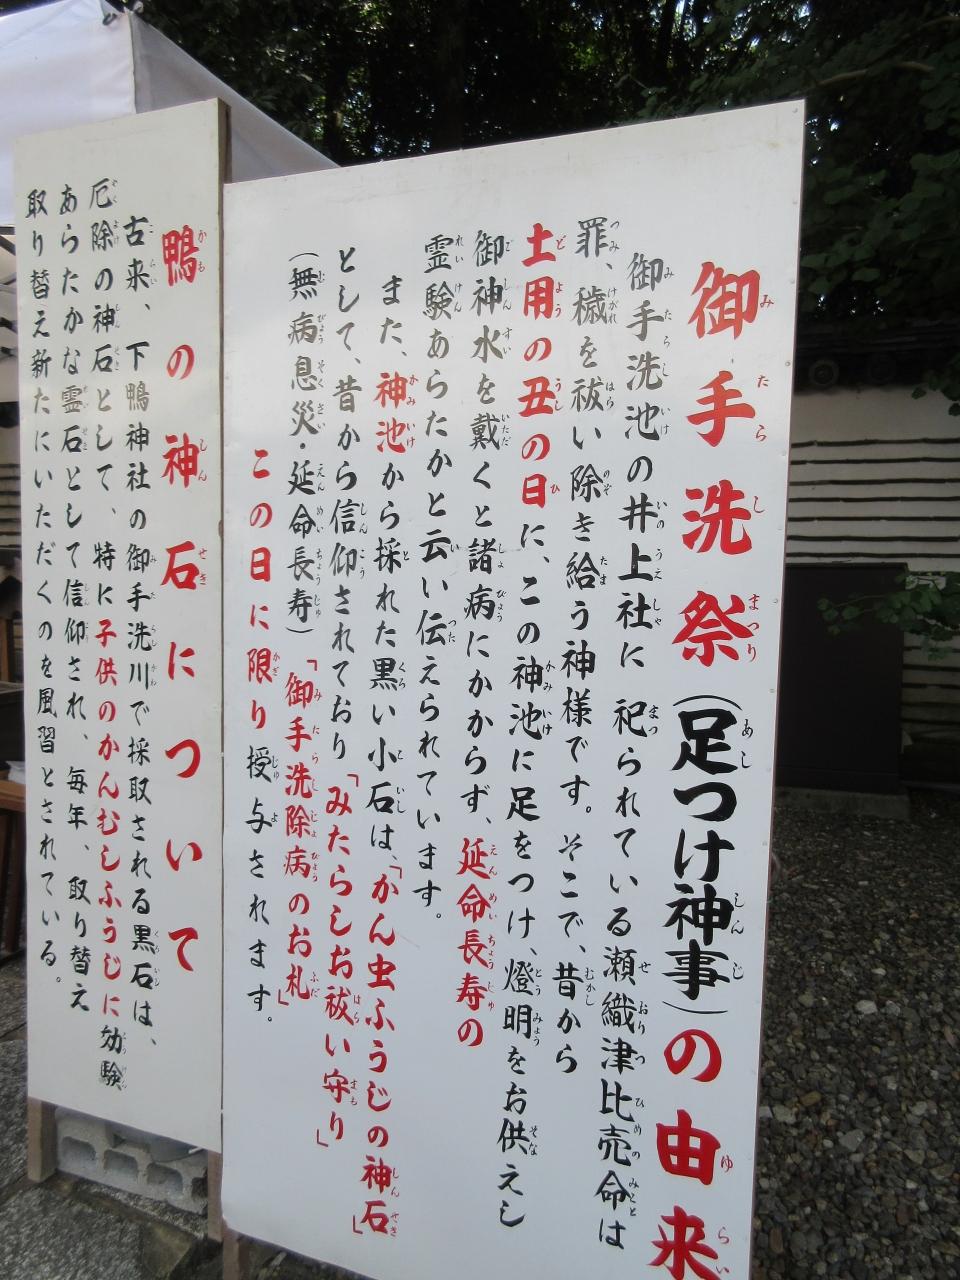 御手洗祭(足つけ神事)の由来
御手洗池の井上社に祀られている瀬織津比売命は
罪、穢を祓い除き給う神様です。そこで、昔から
土用の丑の日に、この神池に足をつけ、燈明をお供えし
御神水を戴くと諸病にかからず、延命長寿の
霊験あらたかと云い伝えられています。
また、神池から採れた黒い小石は、「かん虫ふうじの神石」
として、昔から信仰されており「みたらしお祓い守り」
(無病息災・延命長寿)「御手洗除病のお札」
この日に限り授与されます。
鴨の神石について
古来、下鴨神社の御手洗川で採取される黒石は、
厄除の神石として、特に子供のかんむしふうじに効験
あらたかな霊石として信仰され、毎年、取り替え
取り替え新たにいただくのを風習とされている。